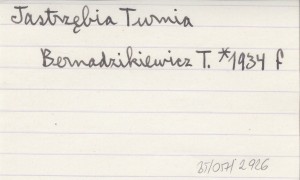 Jastrzębia Turnia
Bernadzikiewicz T. *1934 f
2926